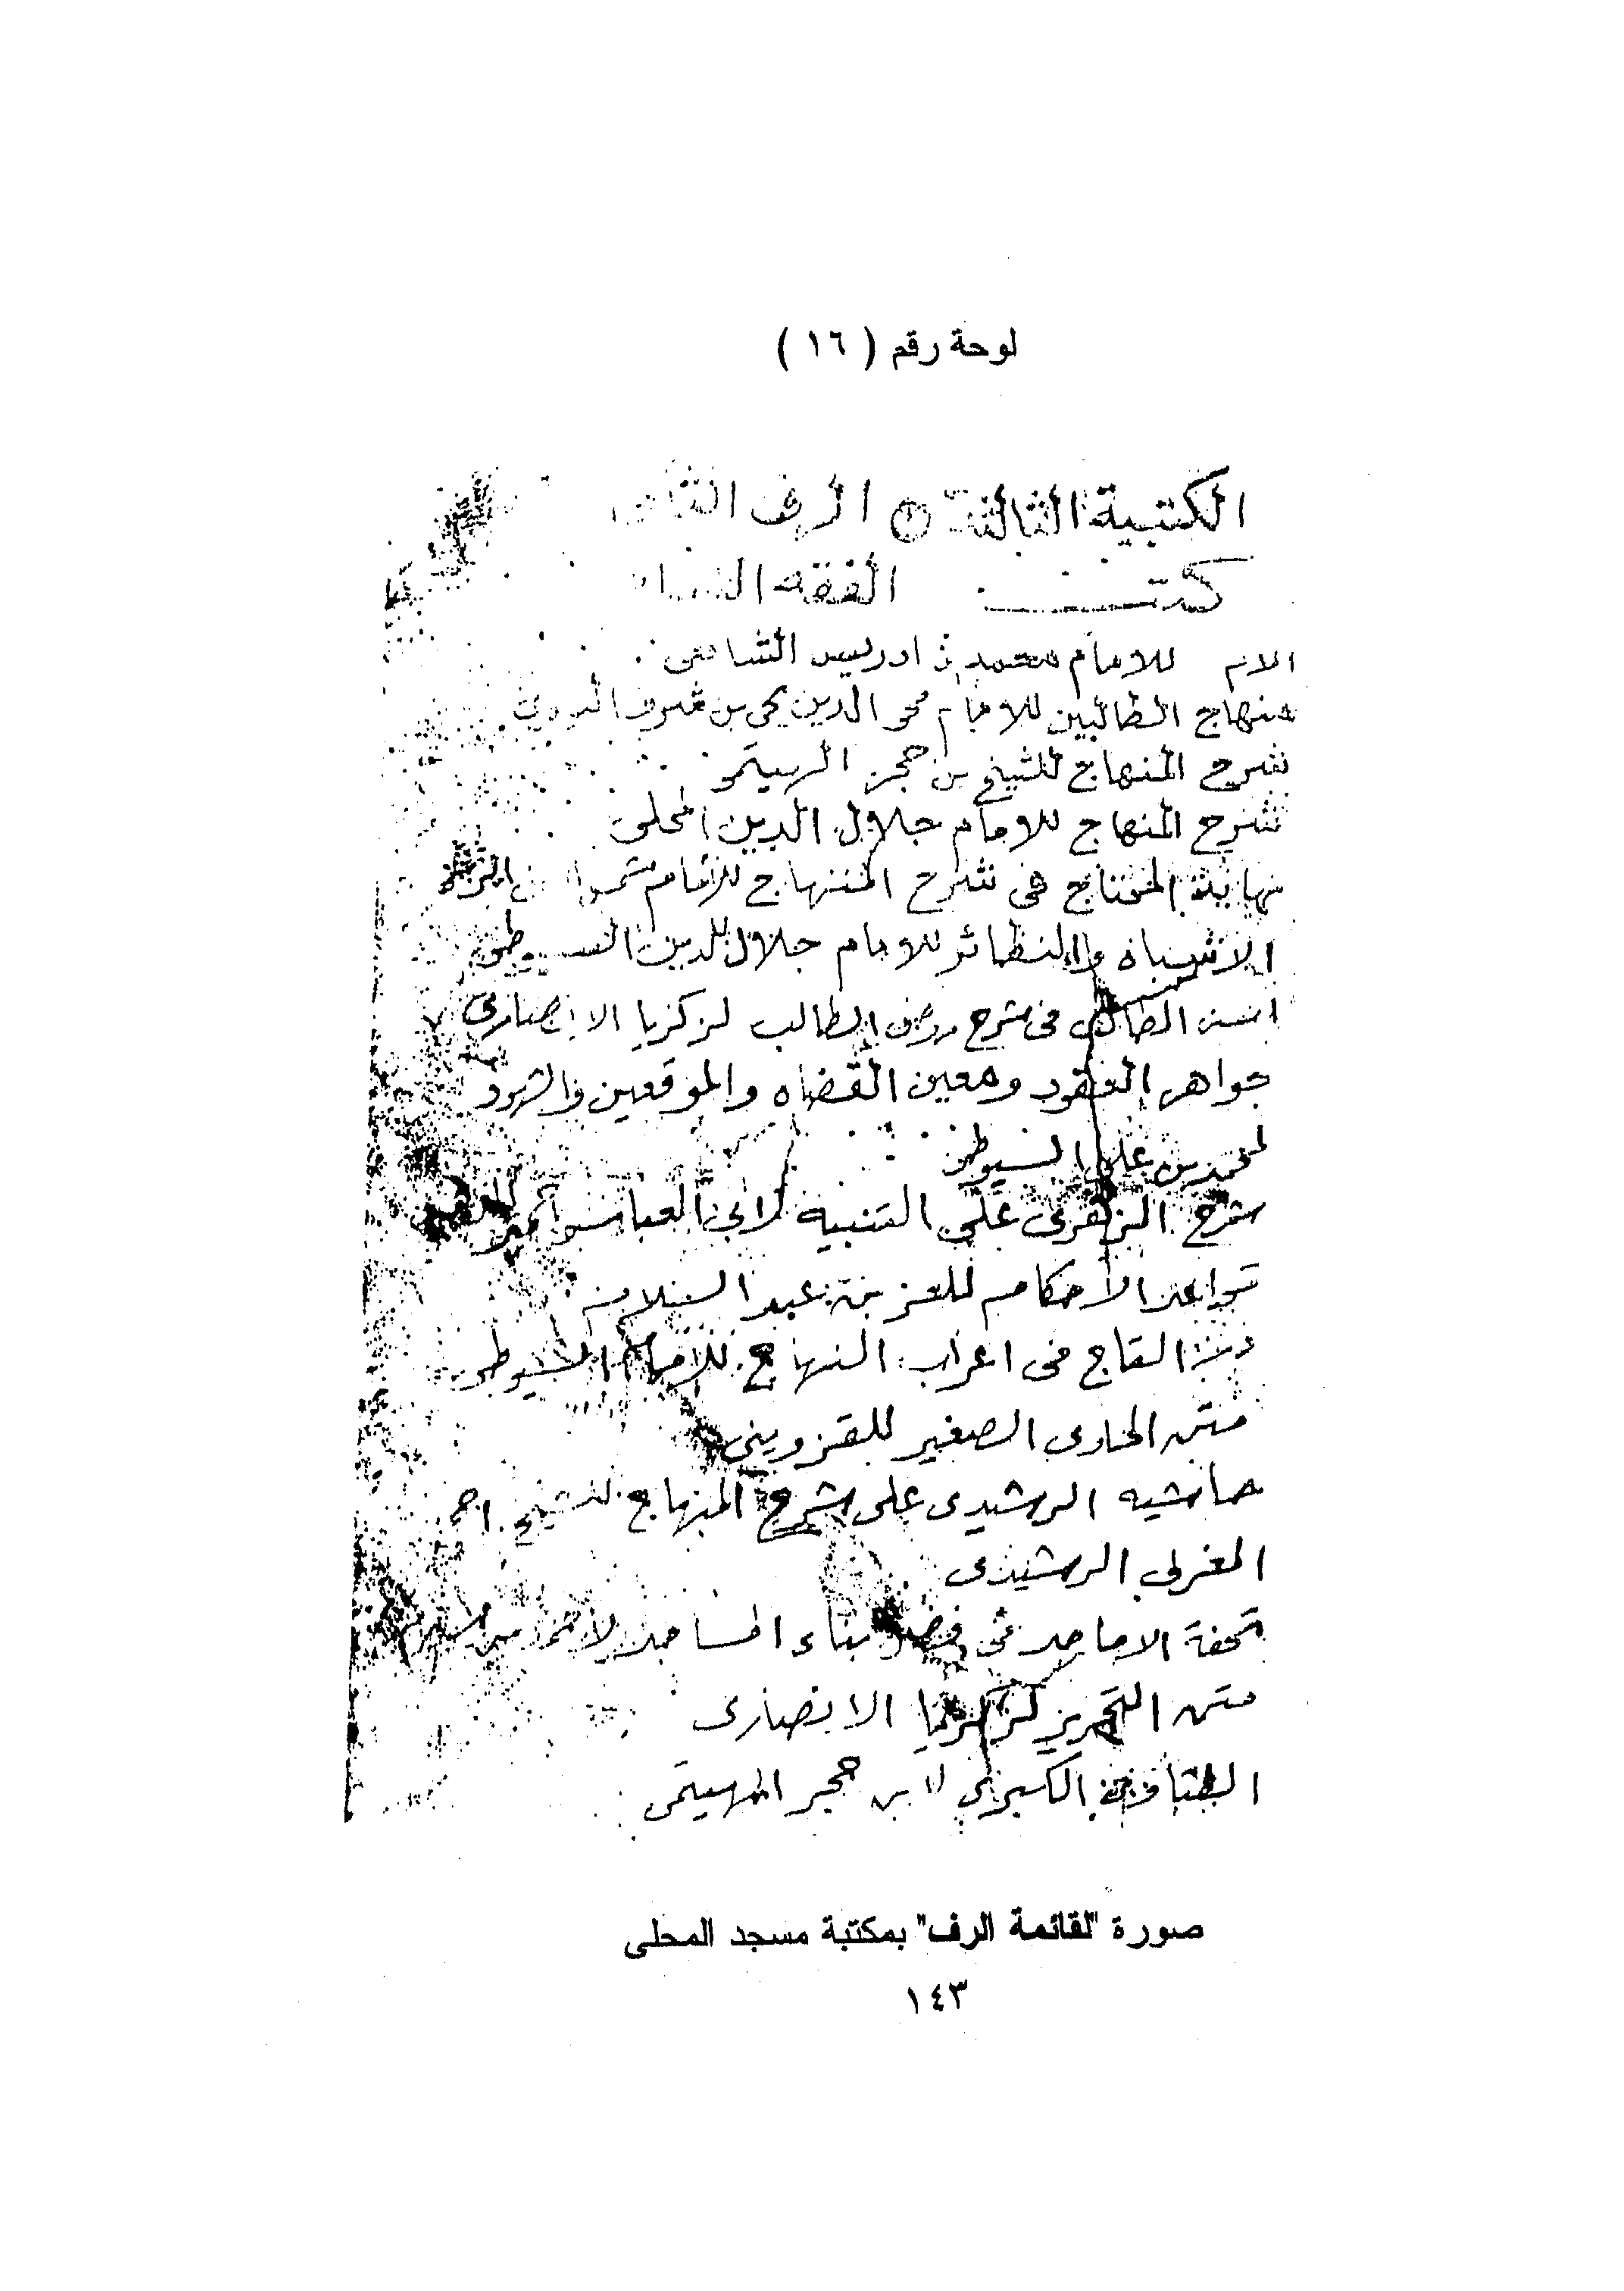 لوحة رقم ( ١٦ )
الكتبية الثالثة الرف
كتب الفقه
الام للامام محمد بن ادريس الشافعى
منهاج الطالبين للامام محى الدين يحى بن شرف النووى
شرح المنهاج للشيخ بن حجر الهيتمى
شرح المنهاج للامام جلال الدين المحلى
نهاية المحتاج فى شرح المنهاج للامام
الاشباه والنظائر للامام جلال الدين السيوطى
اسنى المطالب فى شرح روض الطالب لزكزيا الانصارى
جواهر العقود ومعين القضاه والموقعين والشهود
لمحمد بن على السيوطى
شرح على التنبيه لابى العباس احمد
قواعد الاحكام للعز بن عبد السلام
التاج فى اعراب المنهاج للامام السيوطى
متن الحاوى الصغير للقزوينى
حاشيه الرشيدى على شرح المنهاج للشيخ احمد
المغربى الرشيدى
تحفة الاماجد فى فضل بناء المساجد لاحمد بن
متن التحرير لزكريا الانصارى
الكبرى لابن حجر الهيتمى
صورة "لقائمة الرف" بمكتبة مسجد المحلى
١٤٣